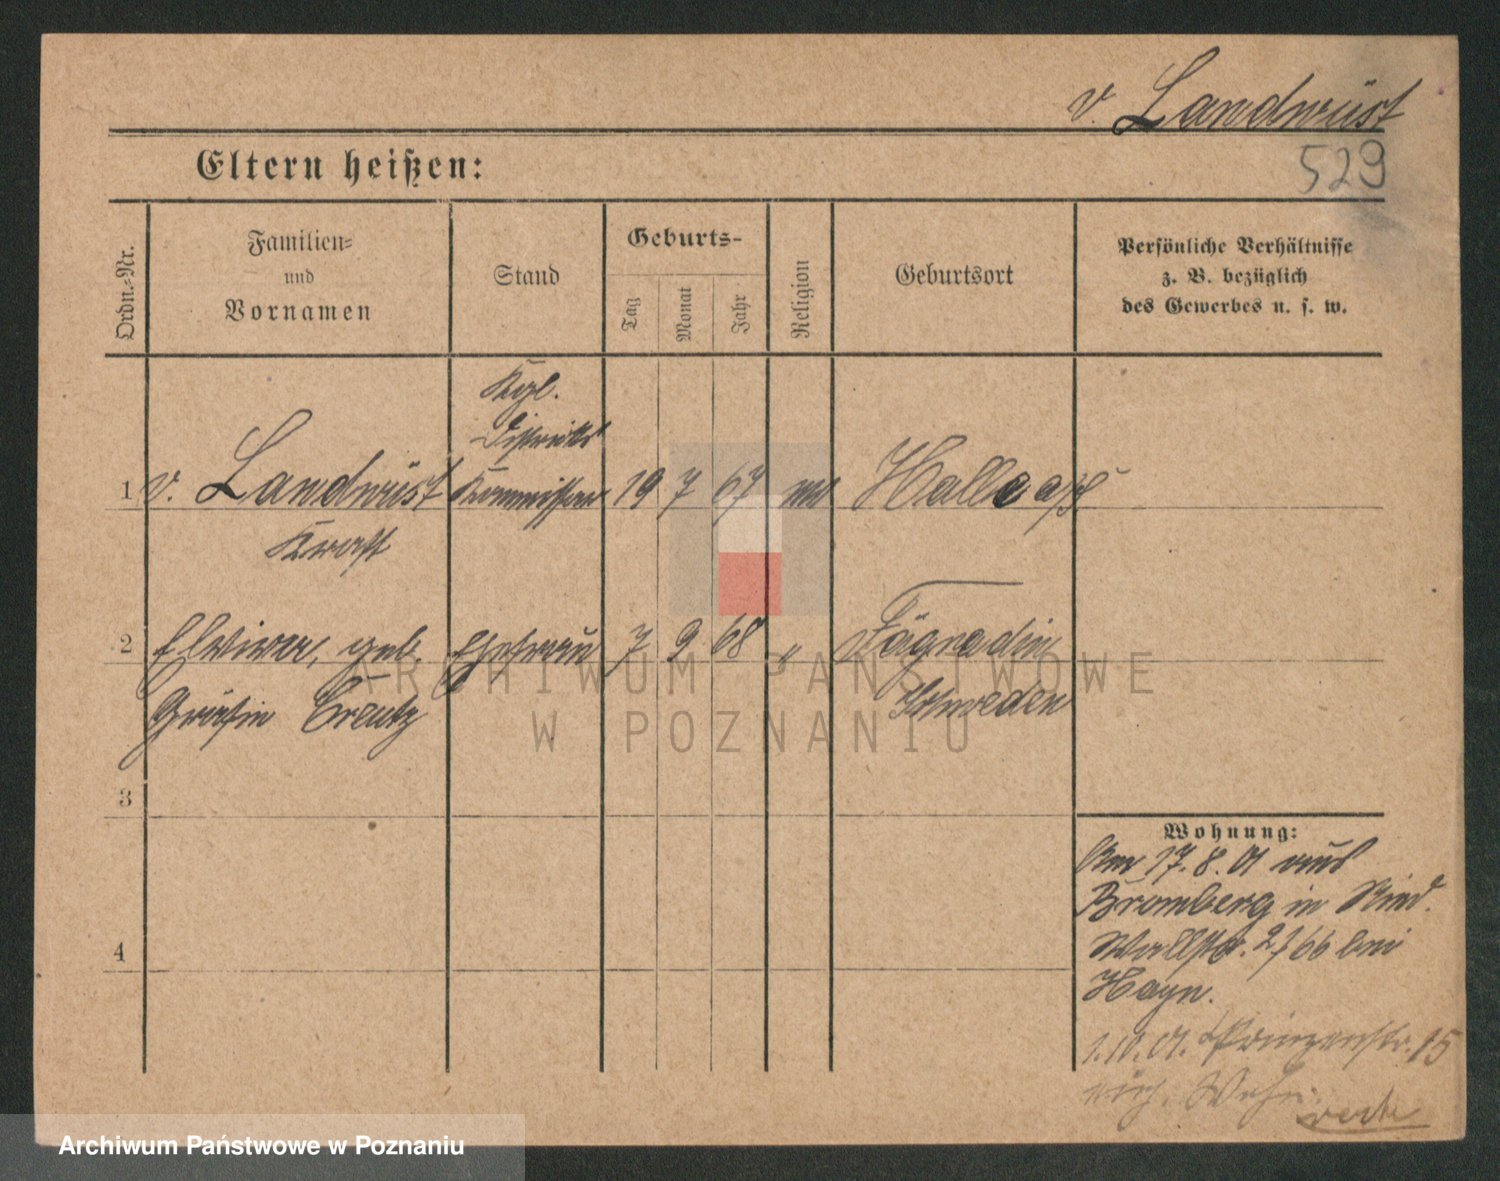 v. Landwüst
529
Eltern heißen:
Ordn.-Nr.
Familien-
und
Vornamen
Stand
Geburts-
Tag
Monat
Jahr
Religion
Geburtsort
Persönliche Verhältnisse
z. B. bezüglich
des Gewerbes u. s. w.
Kgl.
Distrikts
1 v. Landwüst Kommissar 19 7 67 Halle a/S
Kraft
2 Elwira, geb. Ehefrau 7 2 68 " Fägradin
Gräfin Creutz Schweden
3
4
Wohnung:
Am 17.8.01 aus
Bromberg in Nied.
Wallstr. 2 bei
Hayn.
1.10.01. Prinzenstr. 15
Wohn.
ARCHIWUM PAŃSTWOWE
W POZNANIU
Archiwum Państwowe w Poznaniu